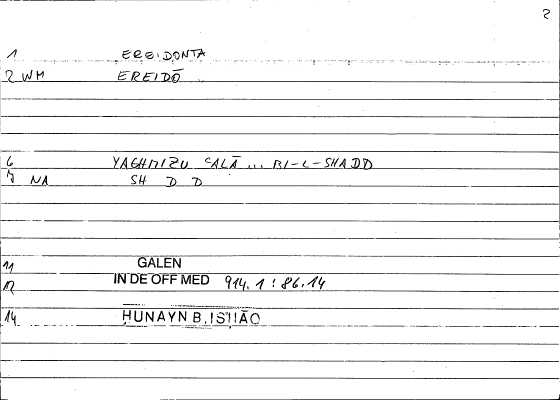 2
1 EREIDONTA
2 WM EREIDŌ
6 YAGHMIZU ʿALĀ ... BI-L-SHADD
7 NA SH D D
11 GALEN
12 IN DE OFF MED 914.1 : 86.14
14 ḤUNAYN B. ISḤĀQ